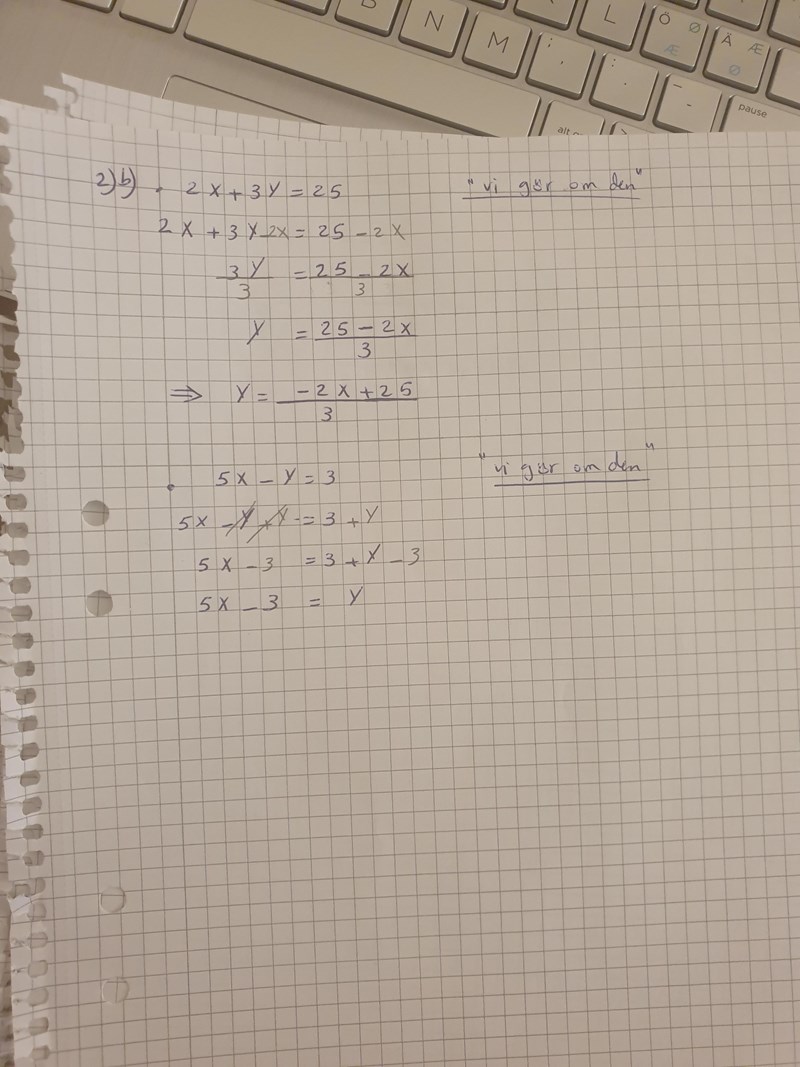 B N M ; , : . - _ L Ö Ø Æ Ä Æ Ø
pause
alt
2)b) . 2x+3y=25 "vi gör om den"
2x+3y-2x=25-2x
3y/3 = 25-2x/3
y = 25-2x/3
⇒ y= -2x+25/3
. 5x-y=3 "vi gör om den"
5x-y+y=3+y
5x-3 =3+y-3
5x-3 = y